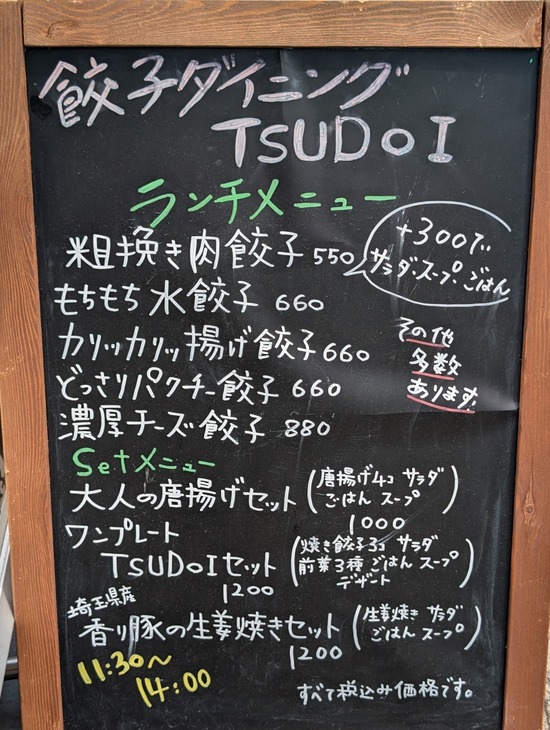 餃子ダイニング
TSUDOI
ランチメニュー
粗挽き肉餃子 550
+300で
サラダ・スープ・ごはん
もちもち水餃子 660
カリッカリッ揚げ餃子 660
どっさりパクチー餃子 660
濃厚チーズ餃子 880
その他
多数
あります。
Setメニュー
大人の唐揚げセット (唐揚げ4コ サラダ
ごはん スープ)
1000
ワンプレート
TSUDOIセット (焼き餃子3コ サラダ
前菜3種 ごはん スープ
デザート)
1200
埼玉県産
香り豚の生姜焼きセット (生姜焼き サラダ
ごはん スープ)
1200
11:30〜
14:00
すべて税込み価格です。